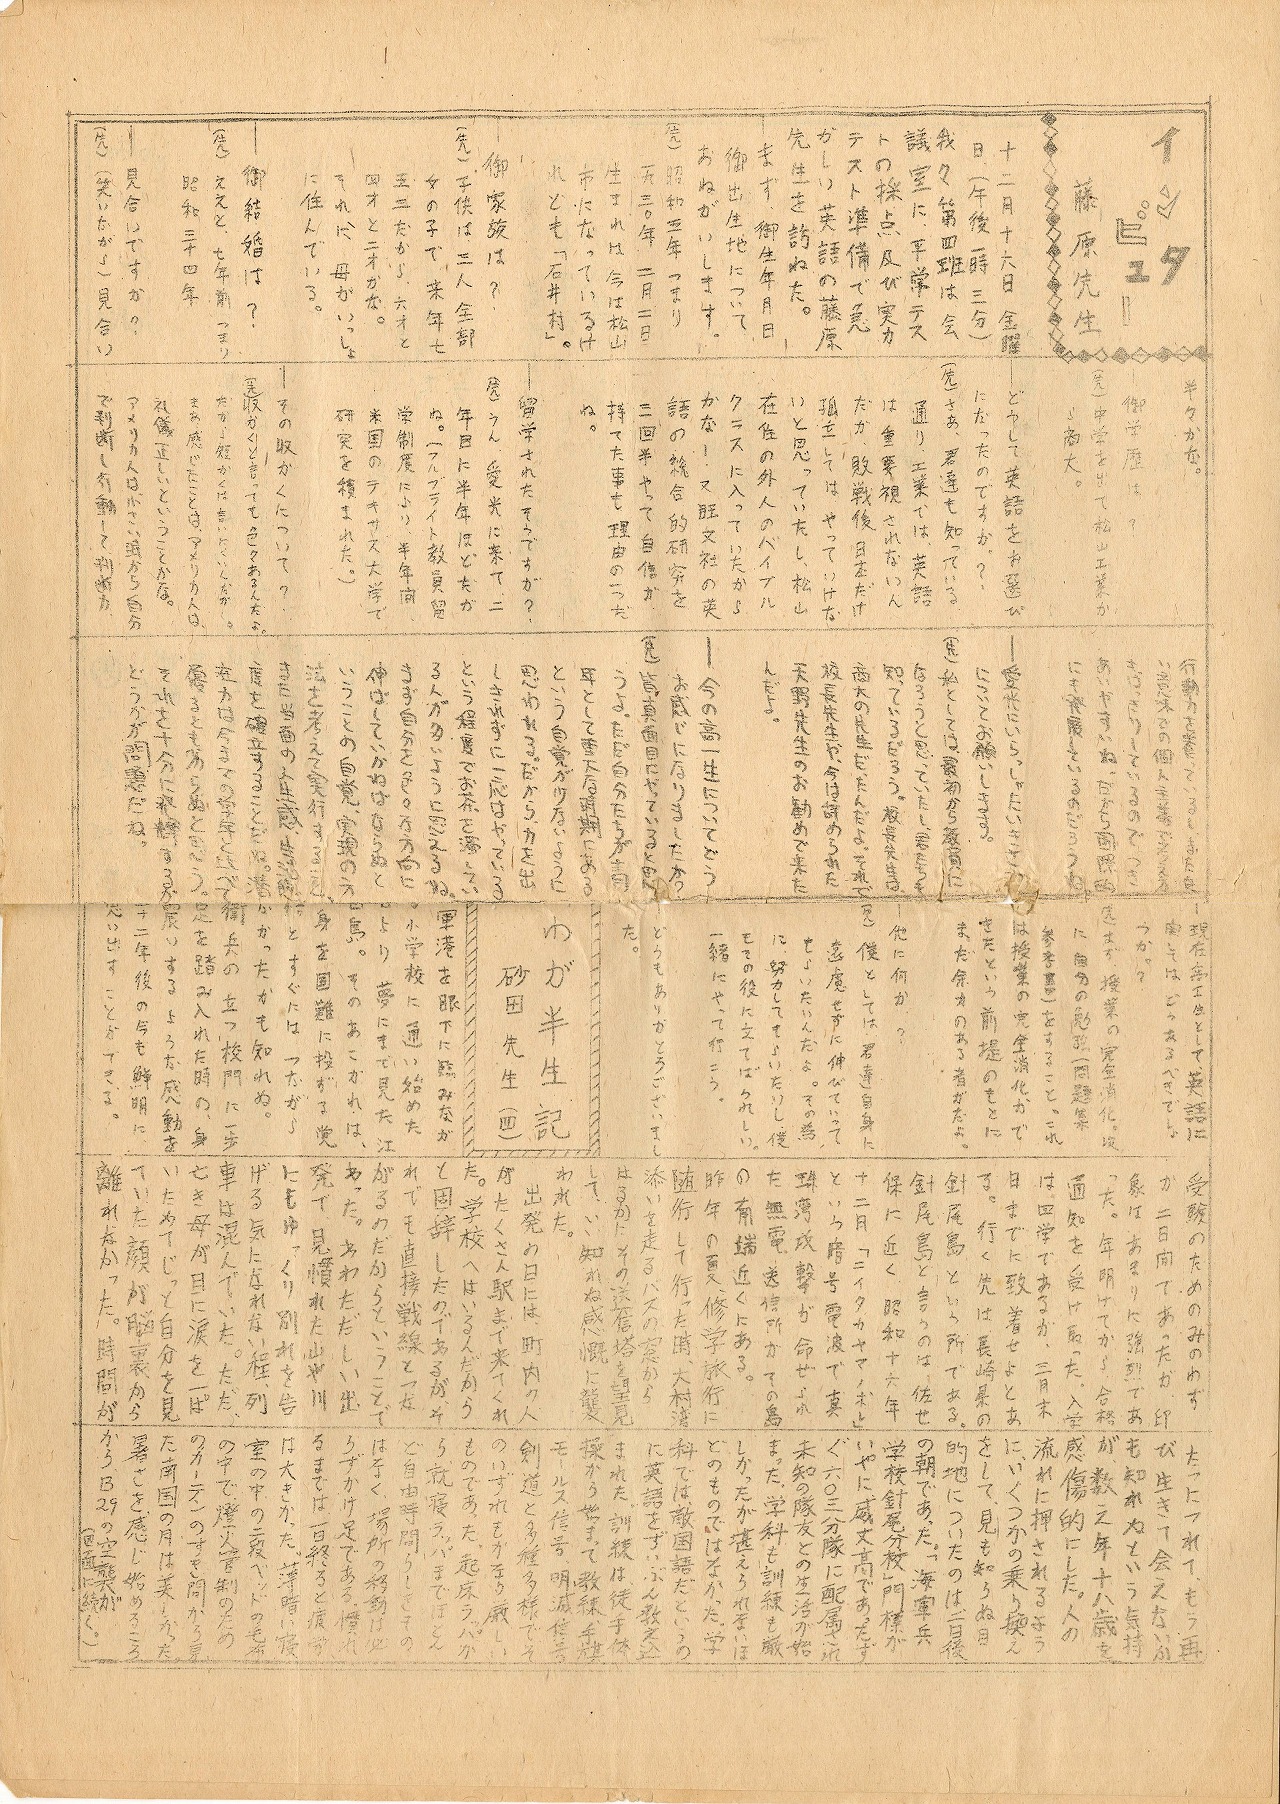 インタビュー
藤原先生
十二月十六日 金曜
日、(午後一時三分)
我々第四班は会
議室に、平常テス
トの採点及び実力
テスト準備で忙
がしい英語の藤原
先生を訪ねた。
―まず、御生年月日
御出生地について
おねがいします。
(先)昭和五年つまり
一九三〇年 二月二日
生まれは今は松山
市になっているけ
れども「石井村」。
―御家族は?
(先)子供は三人 全部
女の子で来年七
五三だから、六才と
四才と二才かな。
それに、母がいっしょ
に住んでいる。
―御結婚は?
(先)ええと、七年前つまり
昭和三十四年
―見合いですか?
(先)(笑いながら)見合い
半々かな。
御学歴は?
(先)中学を出て松山工業か
ら商大。
―どうして英語をお選び
になったのですか?
(先)さあ、君達も知っている
通り、工業では、英語
は重要視されないん
だが、敗戦後日本だけ
孤立してはやっていけな
いと思っていたし、松山
在住の外人のバイブル
クラスに入っていたから
かな!又旺文社の英
語の総合的研究を
三回半やって自信が
持てた事も理由の一つだ
ね。
―留学されたそうですが?
(先)うん、愛光に来て、二
年目に半年ほどだが
ね。(フルブライト教員留
学制度により半年間、
米国のテキサス大学で
研究を積まれた。)
―その収かくについて?
(先)収かくと言っても色々あるんだよ。
だから短かくは言いにくいんだが。
まあ、感じたことは、アメリカ人は、
礼儀正しいということかな。
アメリカ人は小さい頃から自分
で判断し行動して判断力
行動力を養っているし、また
―愛光にいらっしゃたいきさつ
についてお願いします。
(先)私としては最初から教育に
なろうと思っていたし、君たちも
知っているだろう。校長先生は、
商大の先生だったんだよ。それで
校長先生や、今は辞められた
天野先生のお勧めで来た
んだよ。
―今の高一生についてどう
お感じになりましたか?
(先)皆真面目にやっていると思
うよ。ただ自分たちが高
年として重大な時期にある
という自覚が少ないように
思われる。だから、力を出
しきれずに一応はやっている
という程度でお茶を濁してい
る人が多いように思えるね。
まず自分を色々な方向に
伸ばしていかねばならぬと
いうことの自覚、実現の方
法を考えて実行すること、
また当面の人生感、生活態
度を確立することだね。潜
在力は今までの学年と比べて
優るとも劣らぬと思う。
それを十分に発輝するか
どうかが問題だね。
―現在高一生として英語に
関しては どうあるべきでしょ
うか?
(先)まず、授業の完全消化。次
に自分の勉強(問題集
参考書)をすること。これ
は授業の完全消化がで
きたという前提のもとに
まだ余力のある者がだよ。
―他に何か?
(先)僕としては君達自身に
遠慮せずに伸びていって
もらいたいんだよ。その為
に努力してもらいたいし、僕
もその役に立てばうれしい。
一緒にやって行こう。
―どうもありがとうございまし
た。
わが半生記
砂田先生(四)
軍港を眼下に臨みなが
ら小学校に通い始めた
より夢にまで見た江
田島。そのあこがれは、
身を国難に投がる覚
悟とすぐにはつながら
なかったかも知れぬ。
衛兵の立つ校門に一歩
足を踏み入れた時の、身
震いするような感動を
二十二年後の今も鮮明に
思い出すことができる。
受験のためのみのわず
か二日間であったが、印
象はあまりに強烈であ
った。年明けてから合格
通知を受け取った。入学
は、四学であるが、三月末
日までに致着せよとあ
る。行く先は長崎県の
針尾島という所である。
針尾島と言うのは、佐世
保に近く 昭和十六年
十二月「ニイタカヤマノボレ」
という暗号電波で真
珠湾攻撃が命ぜられ
た無電送信所かての島
の南端近くにある。
昨年の夏、修学旅行に
随行して行った時、大村湾
添いを走るバスの窓から
はるかにその送信塔を望見
して、いい知れぬ感慨に襲
われた。
出発の日には、町内の人
がたくさん駅まで来てくれ
た。学校へはいるんだから
と固辞したのであるが、そ
れでも直接戦線とつな
がるのだからということで
あった。あわただしい出
発で、見慣れた山や川
にもゆっくり別れを告
げる気になれない程、列
車は混んでいた。ただ、
亡き母が目に涙を一ぱ
いためてじっと自分を見
ていた顔が脳裏から
離れなかった。時間が
たつにつれて、もう再
び生きて会えない
も知れぬという気持
が、数え年十八歳を
感傷的にした。人の
流れに押されるよう
に、いくつかの乗り換え
をして、見も知らぬ目
的地についたのは二日後
の朝であった。「海軍兵
学校針尾分校」門標が
いやに威丈高であった。す
ぐ六〇三分隊に配属され
未知の隊友との生活が始
まった。学科も訓練も厳
しかったが堪えられないほ
どのものではなかった。学
科では、敵国語だというの
に英語をずいぶん教え込
まれた。訓練は徒手体
操から始まって教練、手旗
モールス信号、明滅信号
剣道と多種多様でそ
のいずれもかなり厳しい
ものであった。起床ラッパか
ら就寝ラッパまでほとん
ど自由時間らしきもの
はなく、場所の移動は必
らずかけ足である。慣れ
るまでは一日終ると疲労
は大きかった。薄暗い寝
室の中の二段ベッドの毛布
の中で、燈火管制のため
のカーテンのすき間から見
た南国の月は美しかった。
暑さを感じ始めるころ
から、B29の空襲が
(四面に続く。)